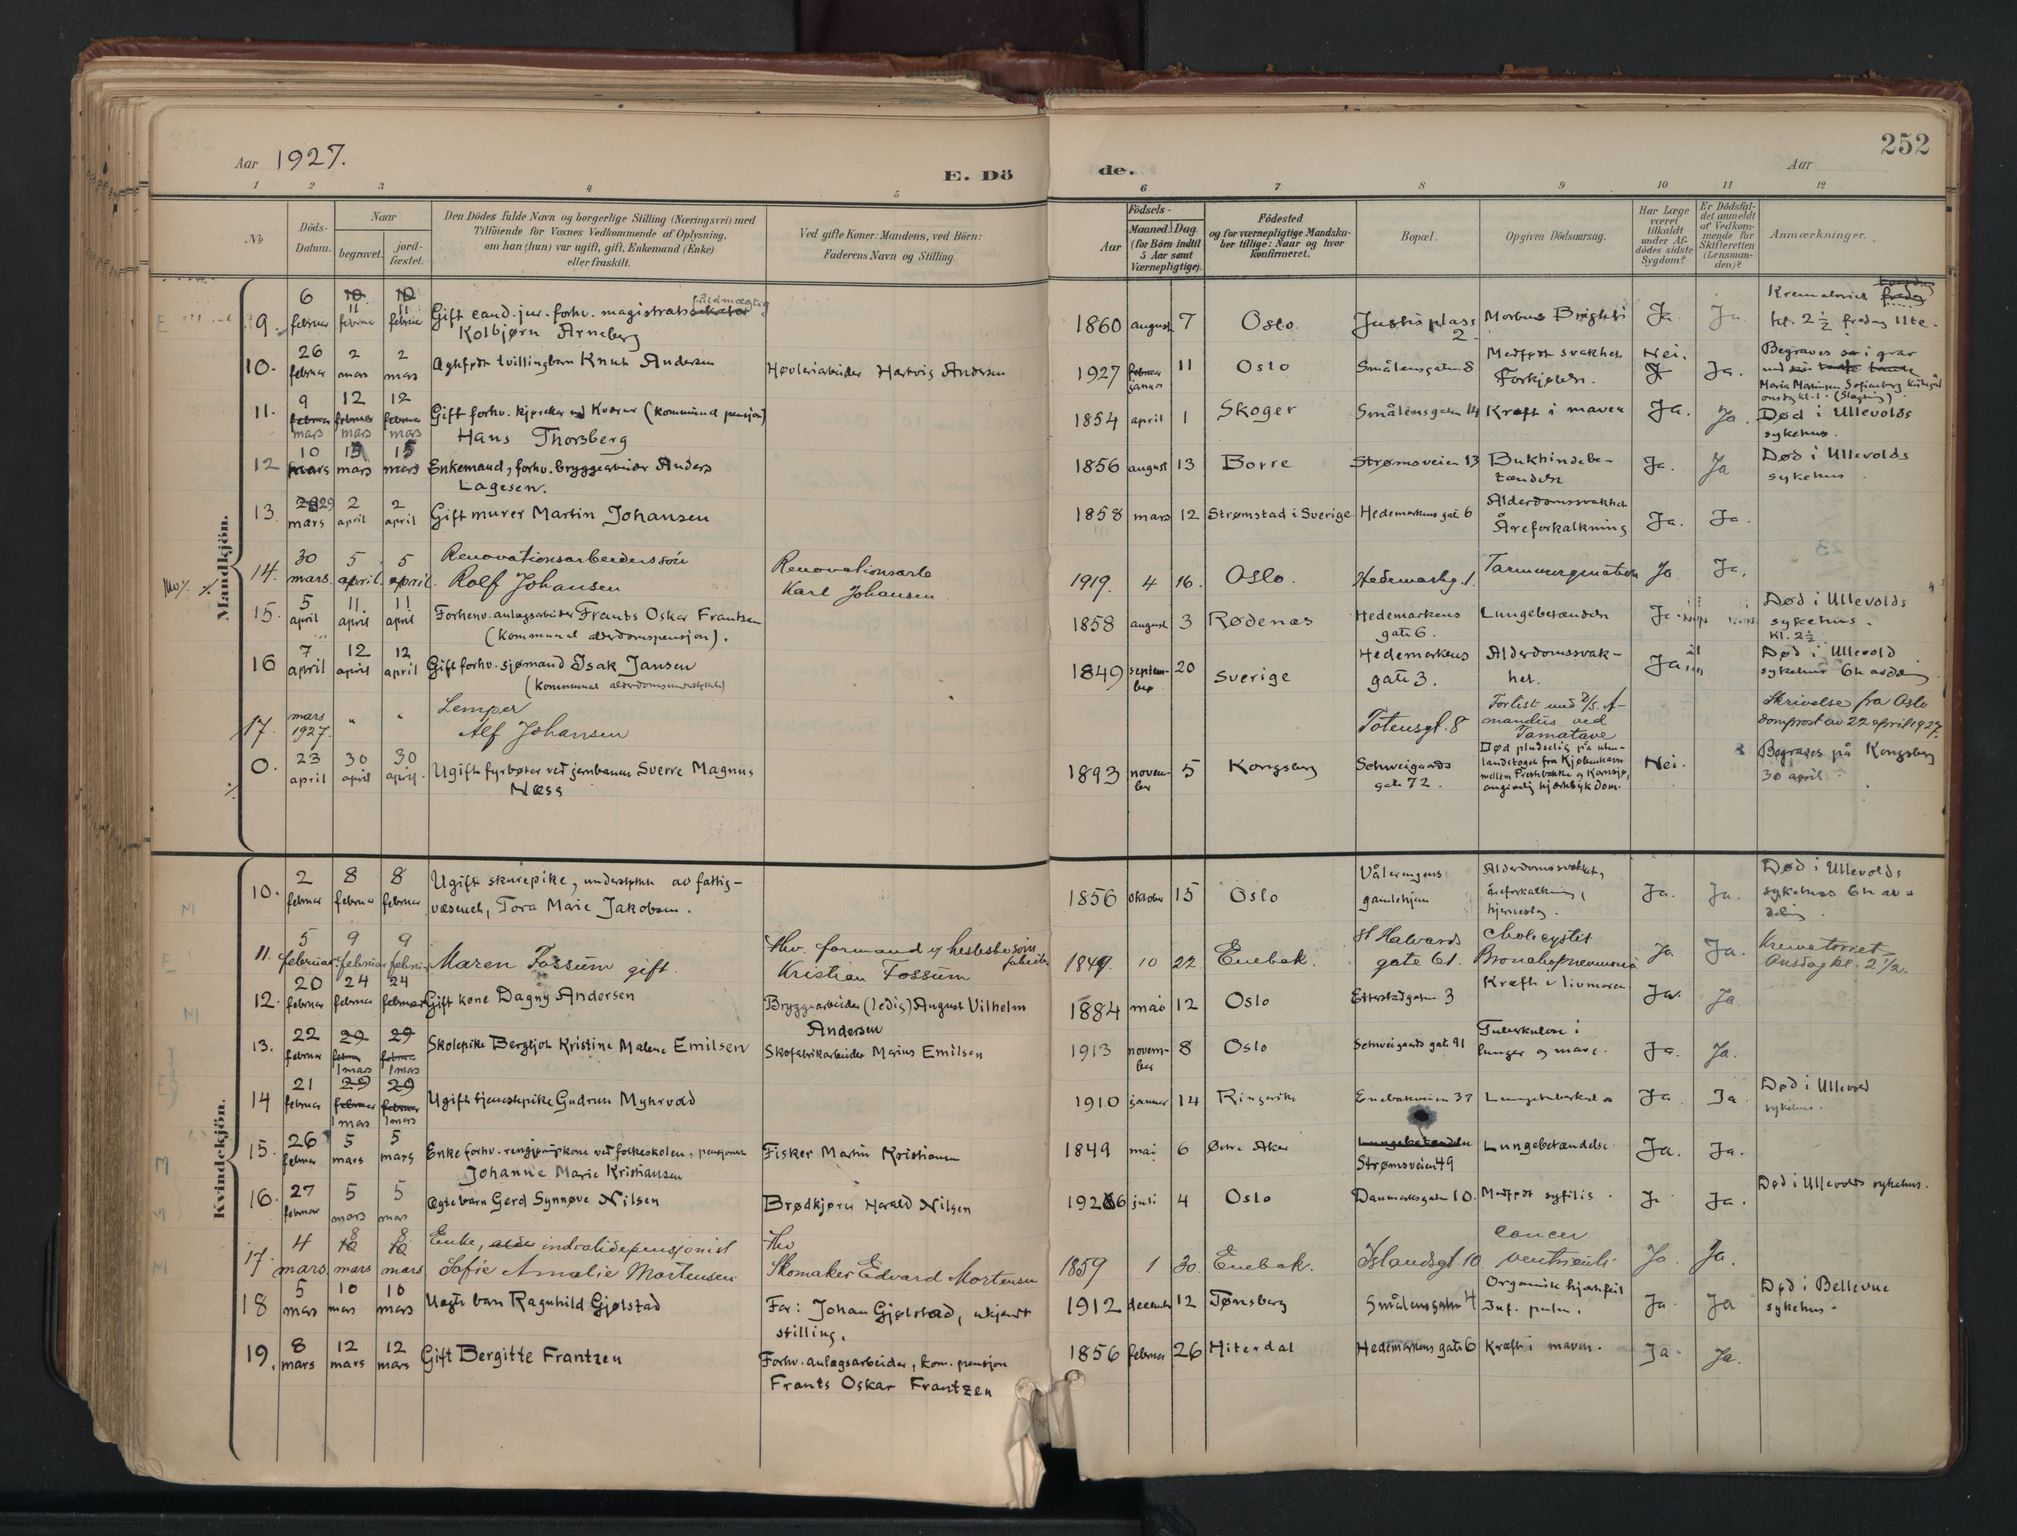 Aar 1927.
E. Dö de.
Aar
252
1 2 3 4 5 6 7 8 9 10 11 12
No
Döds-Datum.
Naar
begravet. jord-fæstet.
Den Dödes fulde Navn og borgerlige Stilling (Næringsvei) med
Tilföiende for Voxnes Vedkommende af Oplysning,
om han (hun) var ugift, gift, Enkemand (Enke)
eller fraskilt.
Ved gifte Koner: Mandens, ved Börn:
Faderens Navn og Stilling.
Födsels-
Aar Maaned Dag
(for Börn indtil
5 Aar samt
Værnepligtige).
Födested
og for værnepligtige Mandska-
ber tillige: Naar og hvor
konfirmeret.
Bopæl.
Opgiven Dödsaarsag.
Har Læge
været
tilkaldt
under Af-
dödes sidste
Sygdom?
Er Dödsfal-
det anmeldt
af Vedkom-
mende for
Skifteretten
(Lensman-
den)?
Anmærkninger.
Mandkjön.
9. 6 februar 11 februar 11 februar Gift cand. jur. forhv. magistrats fuldmægtig
Kolbjørn Arneberg
1860 august 7 Oslo. Justisplass 2. Morbus Brightii Ja. Ja. Krematoriet
kl. 2 1/2 fredag 11te.
10. 26 februar 2 mars 2 mars Ægtefødt tvillingbarn Knut Andersen Høvleriarbeider Hartvig Andersen
1927 januar 11 Oslo Smålensgaten 8 Medfødt svakhet Forkjølelse. Nei. Ja. Begraves i grav
Maria Sofienberg kirkegård
11. 9 mars 12 mars 12 mars Gift forhv. kjører ved Kværner (kommunal pensjon)
Hans Thorsberg
1854 april 1 Skoger Smålensgaten 14 Kræft i maven Ja. Ja. Død i Ullevolds
sykehus.
12 10 mars 15 mars 15 mars Enkemand, forhv. bryggearbeider Anders
Lagesen.
1856 august 13 Borre Strømsveien 13 Bukhindebe-
tændelse Ja. Ja Død i Ullevolds
sykehus.
13. 29 mars 2 april 2 april Gift murer Martin Johansen
1858 mars 12 Strømstad i Sverige Hedemarkens gate 6 Alderdomssvakhet
Åreforkalkning Ja. Ja.
14. 30 mars. 5 april. 5 april. Renovationsarbeiderssön
Rolf Johansen Renovationsarb
Karl Johansen.
1919. 4 16. Oslo. Hedemarkg. 1. Ja. Ja.
15. 5 april 11 april 11 april Forhenv. anlægsarbeider Frants Oskar Frantzen
(kommunal alderdomspensjon).
1858 august 3 Rødenæs Hedemarkens
gate 6. Lungebetændelse Ja. Død i Ullevolds
sykehus.
Kl. 2 1/2
16 7 april 12 april 12 april Gift forhv. sjømand Isak Jansen
(kommunal alderdomsunderstøttelse)
1849 septem-
ber 20 Sverige Hedemarkens
gate 3. Alderdomssvak-
het. Ja Død i Ullevold
sykehus 6te avdeling
17. mars 1927. " " Lemper
Alf Johansen
Totensgt. 8 Forlist med D/S. A-
mandus ved
Tamatave Skrivelse fra Oslo
domprost av 22 april 1927.
0. 23 april 30 april 30 april. Ugift fyrbøter ved jernbanen Sverre Magnus
Næss
1893 novem-
ber 5 Kongsberg Schweigaards
gate 72. Død pludselig på uten-
landstoget fra Kjøbenhavn
mellem Prestebakke og Kornsjø,
angivelig hjertesykdom. Nei. Begraves på Kongsberg
30 april.
Kvindekjön.
10. 2 februar 8 februar 8 februar Ugift skurepike, understøttet av fattig-
væsenet, Tora Marie Jakobsen.
1856 oktober 15 Oslo Vålerengens
gamlehjem Alderdomssvakhet,
åreforkalkning,
hjerneslag. Ja. Ja. Død i Ullevolds
sykehus 6te av-
deling.
11. 5 februar 9 februar 9 februar Maren Fossum gift. fhv. formand v/ hesteskosöm
fabrikk
Kristian Fossum
1849. 10 22. Enebak. St Halvards
gate 61. Cholecystit
Bronchopneumoni Ja Ja. Krematoriet
Onsdag kl. 2 1/2.
12. 20 februar 24 februar 24 februar Gift kone Dagny Andersen Bryggearbeider (ledig) August Vilhelm
Andersen
1884 mai 12 Oslo Etterstadgaten 3 Kræft i livmoren Ja. Ja.
13. 22 februar 29 februar 1 mars 29 februar 1 mars Skolepike Bergljot Kristine Malene Emilsen Skofabrikarbeider Marius Emilsen
1913 novem-
ber 8 Oslo Schweigaards gate 91 Tuberkulose i
lunger og mave. Ja. Ja.
14 21 februar 29 februar 1 mars 29 februar 1 mars Ugift tjenestepike Gudrun Myhrvold
1910 januar 14 Ringerike Enebakveien 37 Lungetuberkulose Ja. Ja Død i Ullevold
sykehus.
15. 26 februar 5 mars 5 mars Enke forhv. rengjøringskone ved folkeskolen, pensjonist
Johanne Marie Kristiansen Fisker Martin Kristiansen
1849 mai 6 Østre Aker Lungebetændelse
Strømsveien 49 Lungebetændelse. Ja. Ja.
16. 27 februar 5 mars 5 mars Ægte barn Gerd Synnøve Nilsen Brødkjører Harald Nilsen
1926 juli 4 Oslo Danmarksgaten 10. Medfødt syfilis. Ja Ja. Død i Ullevolds sykehus.
17. 4 mars. 8 mars 8 mars. Enke, indvalidepensjonist
Sofie Amalie Mortensen fhv
Skomaker Edvard Mortensen
1859 1 30. Enebak. Islandsgt. 10 Cancer
ventriculi Ja Ja.
18 5 mars 10 mars 10 mars Uegte barn Ragnhild Gjølstad Far: Johan Gjølstad, ukjendt
stilling.
1912 december 12 Tønsberg Smålensgaten 4 Organisk hjertefeil
Inf. pulm. Ja. Ja Død i Bellevue
sykehus.
19. 8 mars 12 mars 12 mars Gift Bergitte Frantzen Forhv. anlægsarbeider, kom. pensjon
Frants Oskar Frantzen
1856 februar 26 Hiterdal Hedemarkens gate 6 Kræft i maven. Ja. Ja.